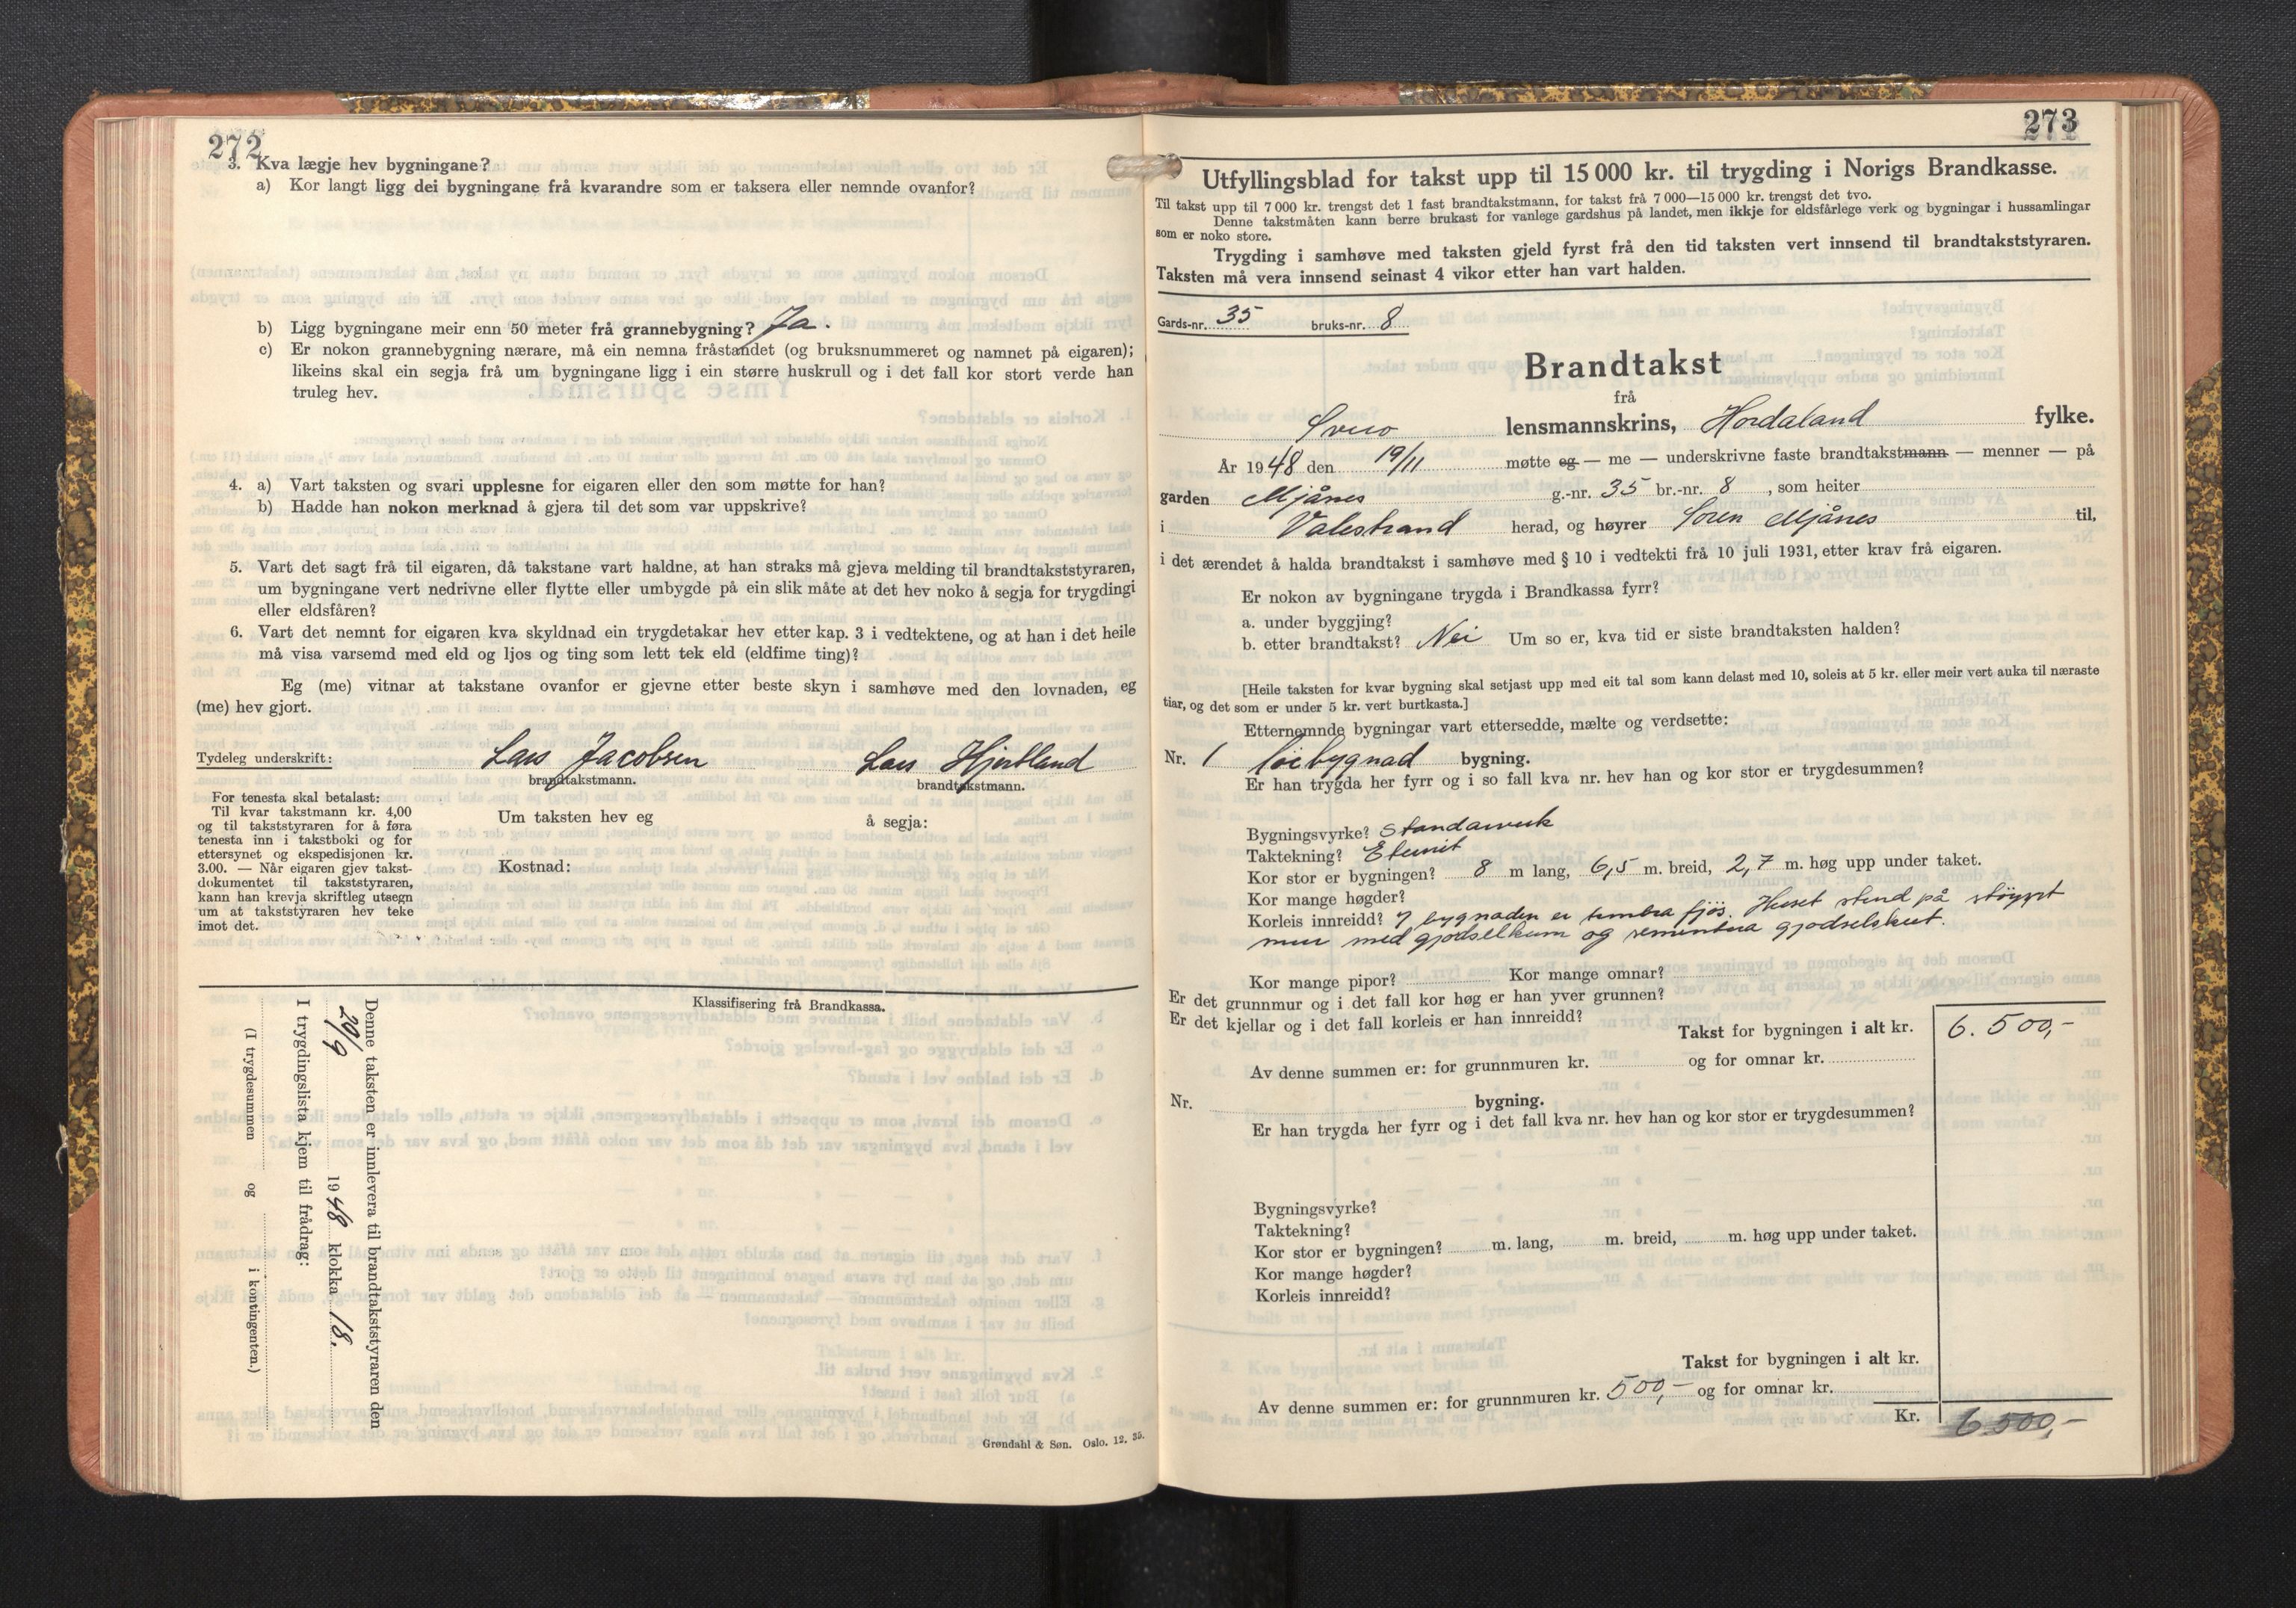 272
3. Kva lægje hev bygningane?
a) Kor langt ligg dei bygningane frå kvarandre som er taksera eller nemnde ovanfor?
b) Ligg bygningane meir enn 50 meter frå grannebygning? Ja.
c) Er nokon grannebygning nærare, må ein nemna fråstandet (og bruksnummeret og namnet på eigaren);
likeins skal ein segja frå um bygningane ligg i ein større huskrull og i det fall kor stort verde han
truleg hev.
4. a) Vart taksten og svari upplesne for eigaren eller den som møtte for han?
b) Hadde han nokon merknad å gjera til det som var uppskrive?
5. Vart det sagt frå til eigaren, då takstane vart haldne, at han straks må gjeva melding til brandtakststyraren,
um bygningane vert nedrivne eller flytte eller umbygde på ein slik måte at det hev noko å segja for trygdingi
eller eldsfåren?
6. Vart det nemnt for eigaren kva skyldnad ein trygdetakar hev etter kap. 3 i vedtektene, og at han i det heile
må visa varsemd med eld og ljos og ting som lett tek eld (eldfime ting)?
Eg (me) vitnar at takstane ovanfor er gjevne etter beste skyn i samhøve med den lovnaden, eg
(me) hev gjort.
Tydeleg underskrift: Lars Jacobsen Lars Hjertland
brandtakstmann. brandtakstmann.
For tenesta skal betalast:
Til kvar takstmann kr. 4,00
og til takststyraren for å føra
tenesta inn i takstboki og for
ettersynet og ekspedisjonen kr.
3.00. — Når eigaren gjev takst-
dokumentet til takststyraren,
kann han krevja skriftleg utsegn
um at takststyraren hev teke
imot det.
Um taksten hev eg å segja:
Kostnad:
Klassifisering frå Brandkassa.
Denne taksten er innlevera til brandtakststyraren den
20/9 1948 klokka 18.
I trygdingslista kjem til frådrag:
(I trygdesummen og i kontingenten.)
Grøndahl & Søn. Oslo. 12. 35.
273
Utfyllingsblad for takst upp til 15 000 kr. til trygding i Norigs Brandkasse.
Til takst upp til 7 000 kr. trengst det 1 fast brandtakstmann, for takst frå 7 000—15 000 kr. trengst det tvo.
Denne takstmåten kann berre brukast for vanlege gardshus på landet, men ikkje for eldsfårlege verk og bygningar i hussamlingar
som er noko store.
Trygding i samhøve med taksten gjeld fyrst frå den tid taksten vert innsend til brandtakststyraren.
Taksten må vera innsend seinast 4 vikor etter han vart halden.
Gards-nr. 35 bruks-nr. 8
Brandtakst
frå
Sveio lensmannskrins, Hordaland fylke.
År 1948 den 19/11 møtte eg — me — underskrivne faste brandtakstmann — menner — på
garden Mjånes g.-nr. 35 br.-nr. 8, som heiter
i Valestrand herad, og høyrer Søren Mjånes til,
i det ærendet å halda brandtakst i samhøve med § 10 i vedtekti frå 10 juli 1931, etter krav frå eigaren.
Er nokon av bygningane trygda i Brandkassa fyrr?
a. under byggjing?
b. etter brandtakst? Nei Um so er, kva tid er siste brandtaksten halden?
[Heile taksten for kvar bygning skal setjast upp med eit tal som kann delast med 10, soleis at 5 kr. eller meir vert auka til næraste
tiar, og det som er under 5 kr. vert burtkasta.]
Etternemnde bygningar vart ettersedde, mælte og verdsette:
Nr. 1 løebygnad bygning.
Er han trygda her fyrr og i so fall kva nr. hev han og kor stor er trygdesummen?
Bygningsvyrke? Standarverk
Taktekning? Eternit
Kor stor er bygningen? 8 m lang, 6,5 m. breid, 2,7 m. høg upp under taket.
Kor mange høgder?
Korleis innreidd? I bygnaden er timbra fjøs. Huset stend på støypt
mur med gjødselkum og sementera gjødselskut.
Kor mange pipor? Kor mange omnar?
Er det grunnmur og i det fall kor høg er han yver grunnen?
Er det kjellar og i det fall korleis er han innreidd?
Takst for bygningen i alt kr. 6.500,-
Av denne summen er: for grunnmuren kr. og for omnar kr.
Nr. bygning.
Er han trygda her fyrr og i det fall kva nr. hev han og kor stor er trygdesummen?
Bygningsvyrke?
Taktekning?
Kor stor er bygningen? m. lang, m. breid, m. høg upp under taket.
Kor mange høgder?
Korleis innreidd?
Takst for bygningen i alt kr.
Av denne summen er: for grunnmuren kr. 500,- og for omnar kr.
Kr. 6500,-